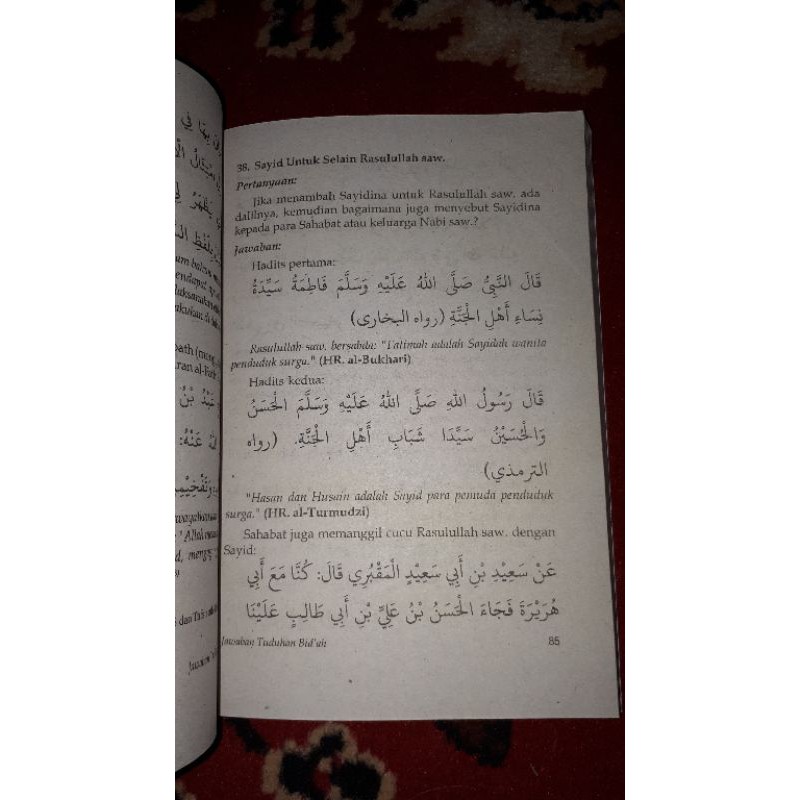 38. Sayid Untuk Selain Rasulullah saw.
Pertanyaan:
Jika menambah Sayidina untuk Rasulullah saw. ada
dalilnya, kemudian bagaimana juga menyebut Sayidina
kepada para Sahabat atau keluarga Nabi saw.?
Jawaban:
Hadits pertama:
قَالَ النَّبِيُّ صَلَّى اللهُ عَلَيْهِ وَسَلَّمَ فَاطِمَةُ سَيِّدَةُ
نِسَاءِ أَهْلِ الْجَنَّةِ (رواه البخارى)
Rasulullah saw. bersabda: "Fatimah adalah Sayidah wanita
penduduk surga." (HR. al-Bukhari)
Hadits kedua:
قَالَ رَسُولُ اللهِ صَلَّى اللهُ عَلَيْهِ وَسَلَّمَ الْحَسَنُ
وَالْحُسَيْنُ سَيِّدَا شَبَابِ أَهْلِ الْجَنَّةِ. (رواه
الترمذي)
"Hasan dan Husain adalah Sayid para pemuda penduduk
surga." (HR. al-Turmudzi)
Sahabat juga memanggil cucu Rasulullah saw. dengan
Sayid:
عَنْ سَعِيْدِ بْنِ أَبِي سَعِيْدٍ الْمَقْبُرِي قَالَ: كُنَّا مَعَ أَبِي
هُرَيْرَةَ فَجَاءَ الْحَسَنُ بْنُ عَلِيِّ بْنِ أَبِي طَالِبٍ عَلَيْنَا
Jawaban Tuduhan Bid'ah 85